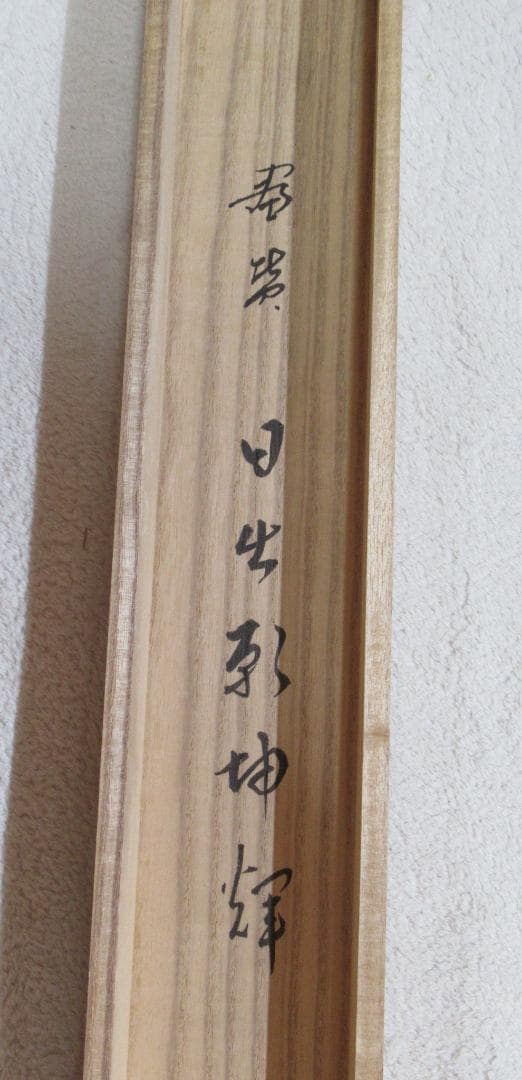 畫賛 日出乾坤輝